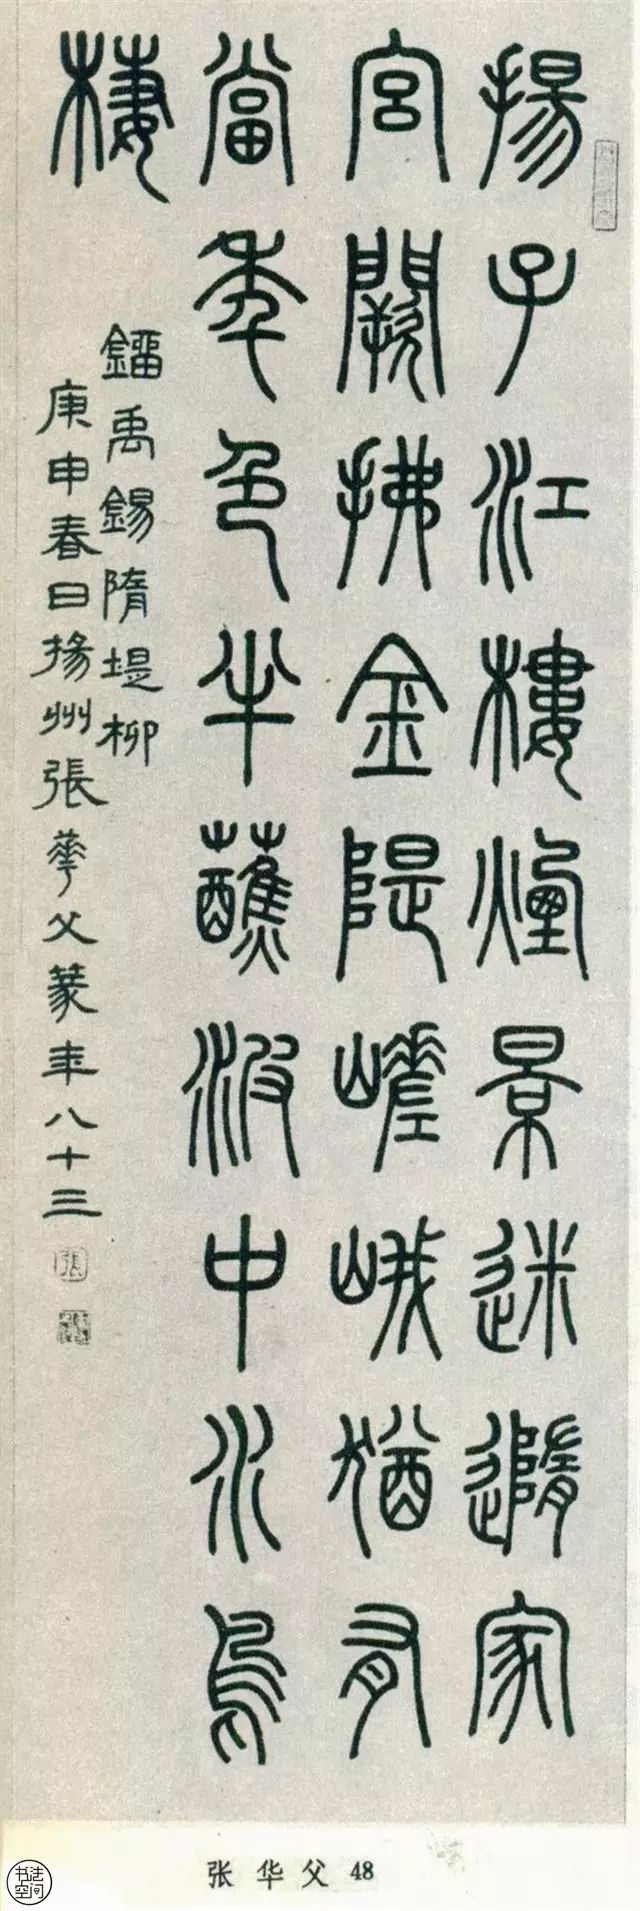 揚子江樓煙景迷隨家
宮闕拂金隄嵯峨猶有
當年色半蘸波中水鳥
棲
鎦禹錫隋堤柳
庚申春日揚州張華父篆年八十三
张华父 48
书法空间